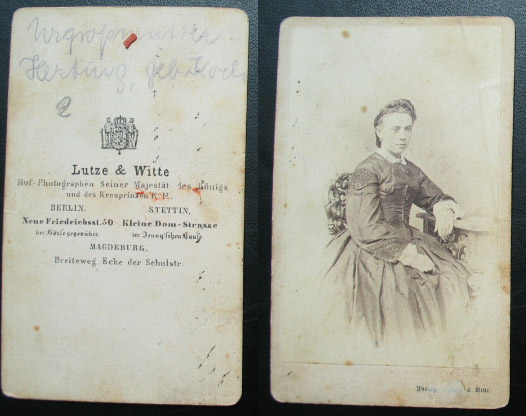 Urgrossmutter
Hertung, geb. Koch
2
Lutze & Witte
Hof-Photographen Seiner Majestät des Königs
und des Kronprinzen K. H.
BERLIN, STETTIN,
Neue Friedrichsst. 50 Kleine Dom-Strasse
der Börse gegenüber. im Jenny'schen Hause.
MAGDEBURG,
Breiteweg, Ecke der Schulstr.
Photog. & Witte